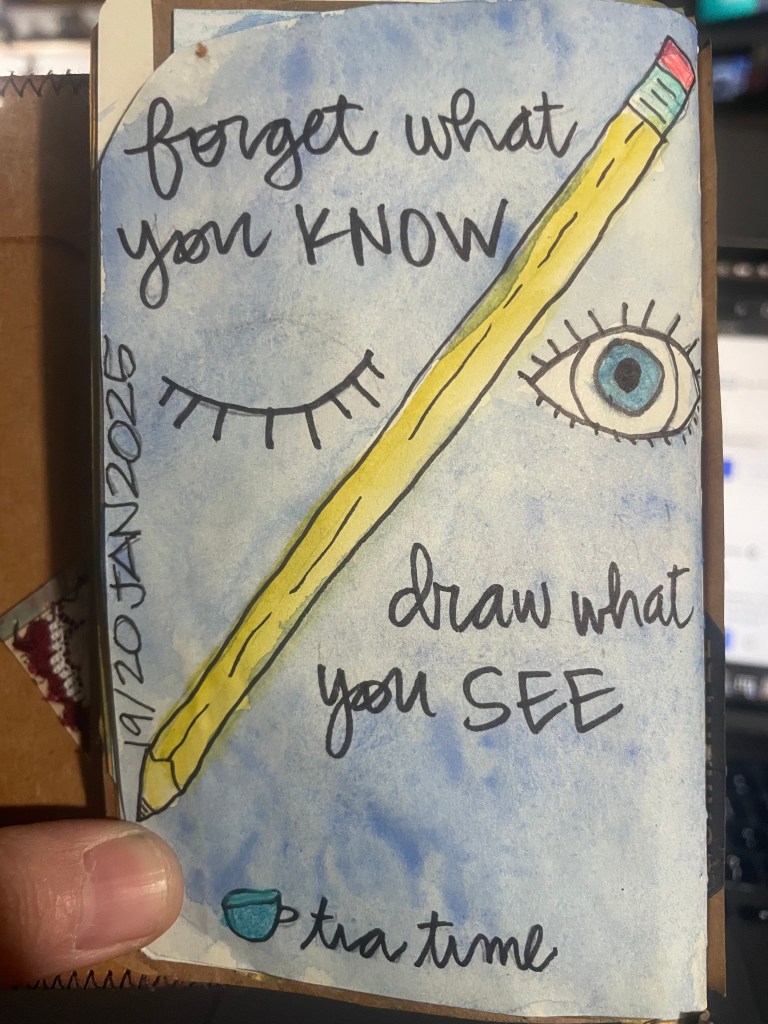 forget what
you KNOW
draw what
you SEE
19/20 JAN 2025
tea time